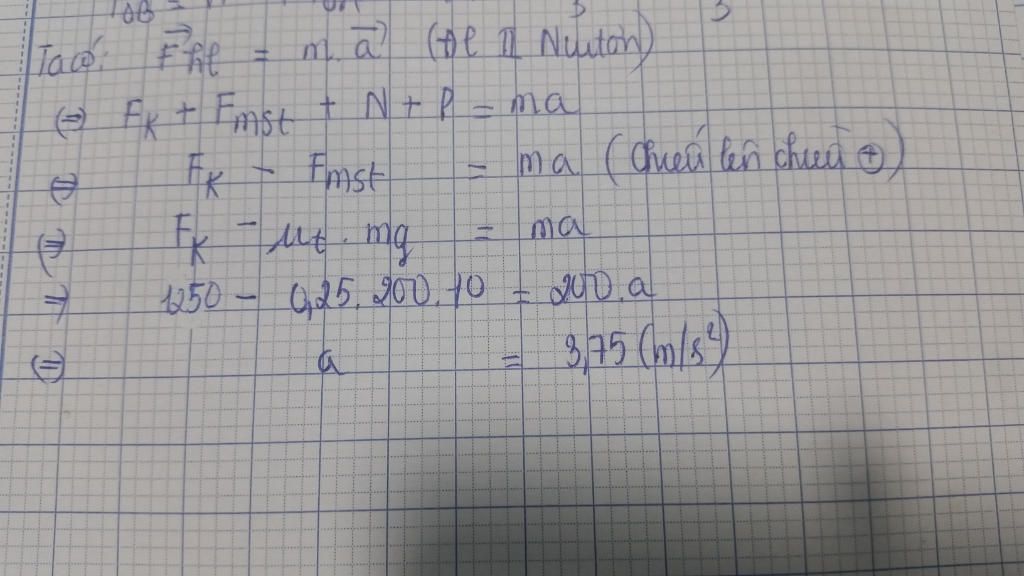 Ta có: F⃗hl = m.a⃗ (đl II Newton)
⇔ FK + Fmst + N + P = ma
⇔ FK - Fmst = ma (Chiếu lên chiều ⊕)
⇔ FK - μt.mg = ma
⇒ 1250 - 0,25.200.10 = 200.a
⇔ a = 3,75 (m/s²)